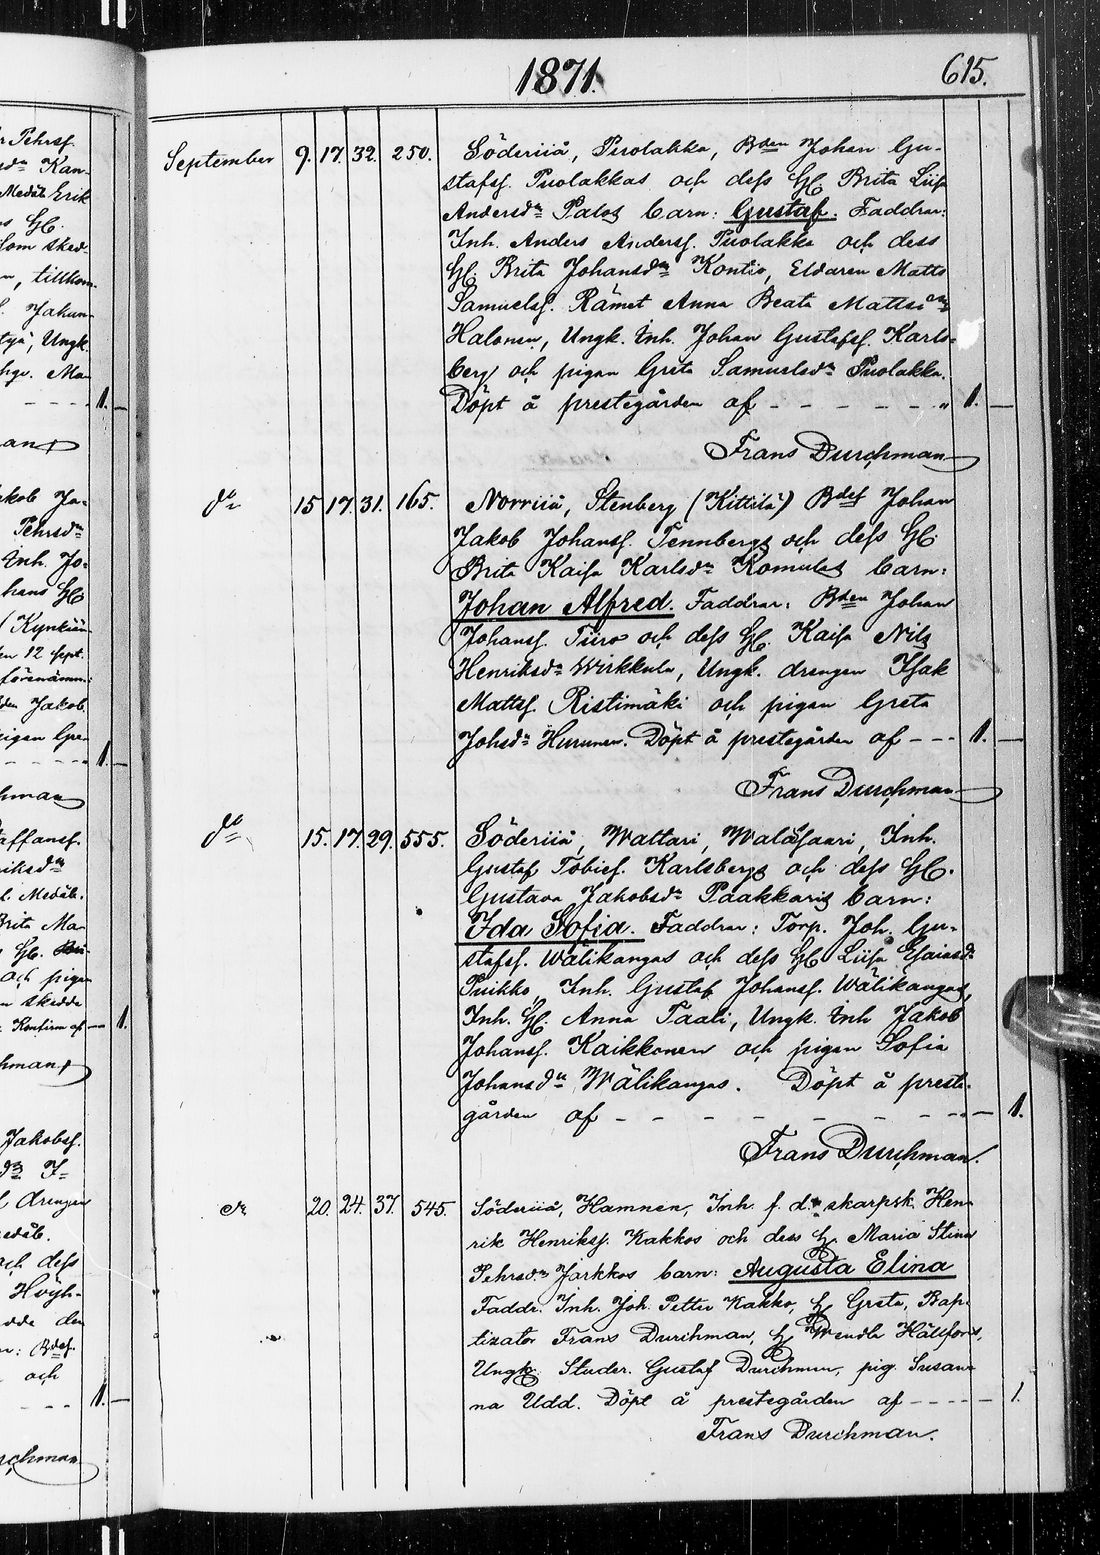 1871.
615.
September 9. 17. 32. 250. Söderiiå, Puolakka, Bden Johan Gu-
stafsf. Puolakkas och dess H. Brita Liisa
Andersdr Palos barn: Gustaf. Faddrar:
Inh. Anders Andersf. Puolakka och dess
H. Brita Johansdr Kontio, Eldaren Matts
Samuelsf. Rämet Anna Beata Mattsdr
Halonen, Ungk. Inh. Johan Gustafsf. Karls-
berg och pigan Greta Samuelsdr Puolakka.
Döpt å prestegården af - - - - - - " 1. -
Frans Durchman
do 15 17. 31. 165. Norriiå, Stenberg (Kittilä) Bdes Johan
Jakob Johansf. Tennbergs och dess H.
Brita Kaisa Karlsdr Komulas barn:
Johan Alfred. Faddrar: Bden Johan
Johansf. Tiiro och dess H. Kaisa Nils
Henriksdr Wirkkula, Ungk. drengen Isak
Mattsf. Ristimäki och pigan Greta
Johsdr Hurunen. Döpt å prestegården af - - - 1. -
Frans Durchman
do 15. 17. 29. 555. Söderiiå, Wattari, Inh.
Gustaf Tobief. Karlsbergs och dess H.
Gustava Jakobsdr Paakkaris barn:
Ida Sofia. Faddrar: Torp. Joh. Gu-
stafsf. Wälikangas och dess H. Liisa Esaiasdr
Puikko, Inh. Gustaf Johansf. Wälikangas,
Inh. H. Anna Taali, Ungk. Inh Jakob
Johansf. Kaikkonen och pigan Sofia
Johansdr Wälikangas. Döpt å preste-
gården af - - - - - - - - 1.
Frans Durchman.
dr 20. 24. 37. 545. Söderiiå, Hamnen, Inh. f. d. skarpsk. Hen-
rik Henriksf. Kakkos och dess h. Maria Stina
Pehrsdr Jarkkos barn: Augusta Elina
Faddr. Inh. Joh. Petter Kakko, h. Greta, Bap-
tizator Frans Durchman, h. Wendla Hällfors,
Ungk. Studer. Gustaf Durchman, pig. Susan-
na Udd. Döpt å prestegården af - - - - - 1.
Frans Durchman.